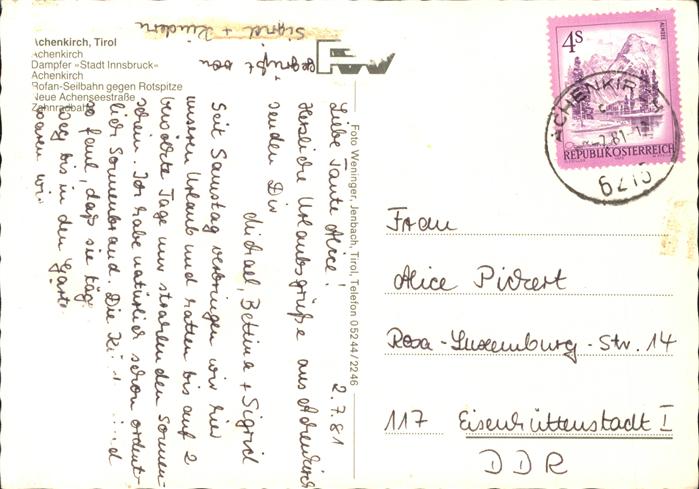 Achenkirch, Tirol
Achenkirch
Dampfer »Stadt Innsbruck«
Achenkirch
Rofan-Seilbahn gegen Rotspitze
Neue Achenseestraße
Zahnradbahn
Foto Weninger, Jenbach, Tirol, Telefon 05244/2246
2.7.81
Liebe Tante Alice!
Herzliche Urlaubsgrüße aus Achenkirch
senden Dir
Michael, Bettina + Sigrid
Seit Samstag verbringen wir hier
unseren Urlaub und hatten bis auf 2
bewölkte Tage nur strahlenden Sonnen-
schein. Ich habe natürlich schon ordent-
lich Sonnenbrand. Die sind
so faul, daß sie
Weg bis in den
sparen wir
gegrüßt von
Sigrid + Kindern
4S
ALMSEE
REPUBLIK ÖSTERREICH
ACHENKIRCH
6215
Frau
Alice Pickert
Rosa-Luxemburg-Str. 14
117 Eisenhüttenstadt I
DDR